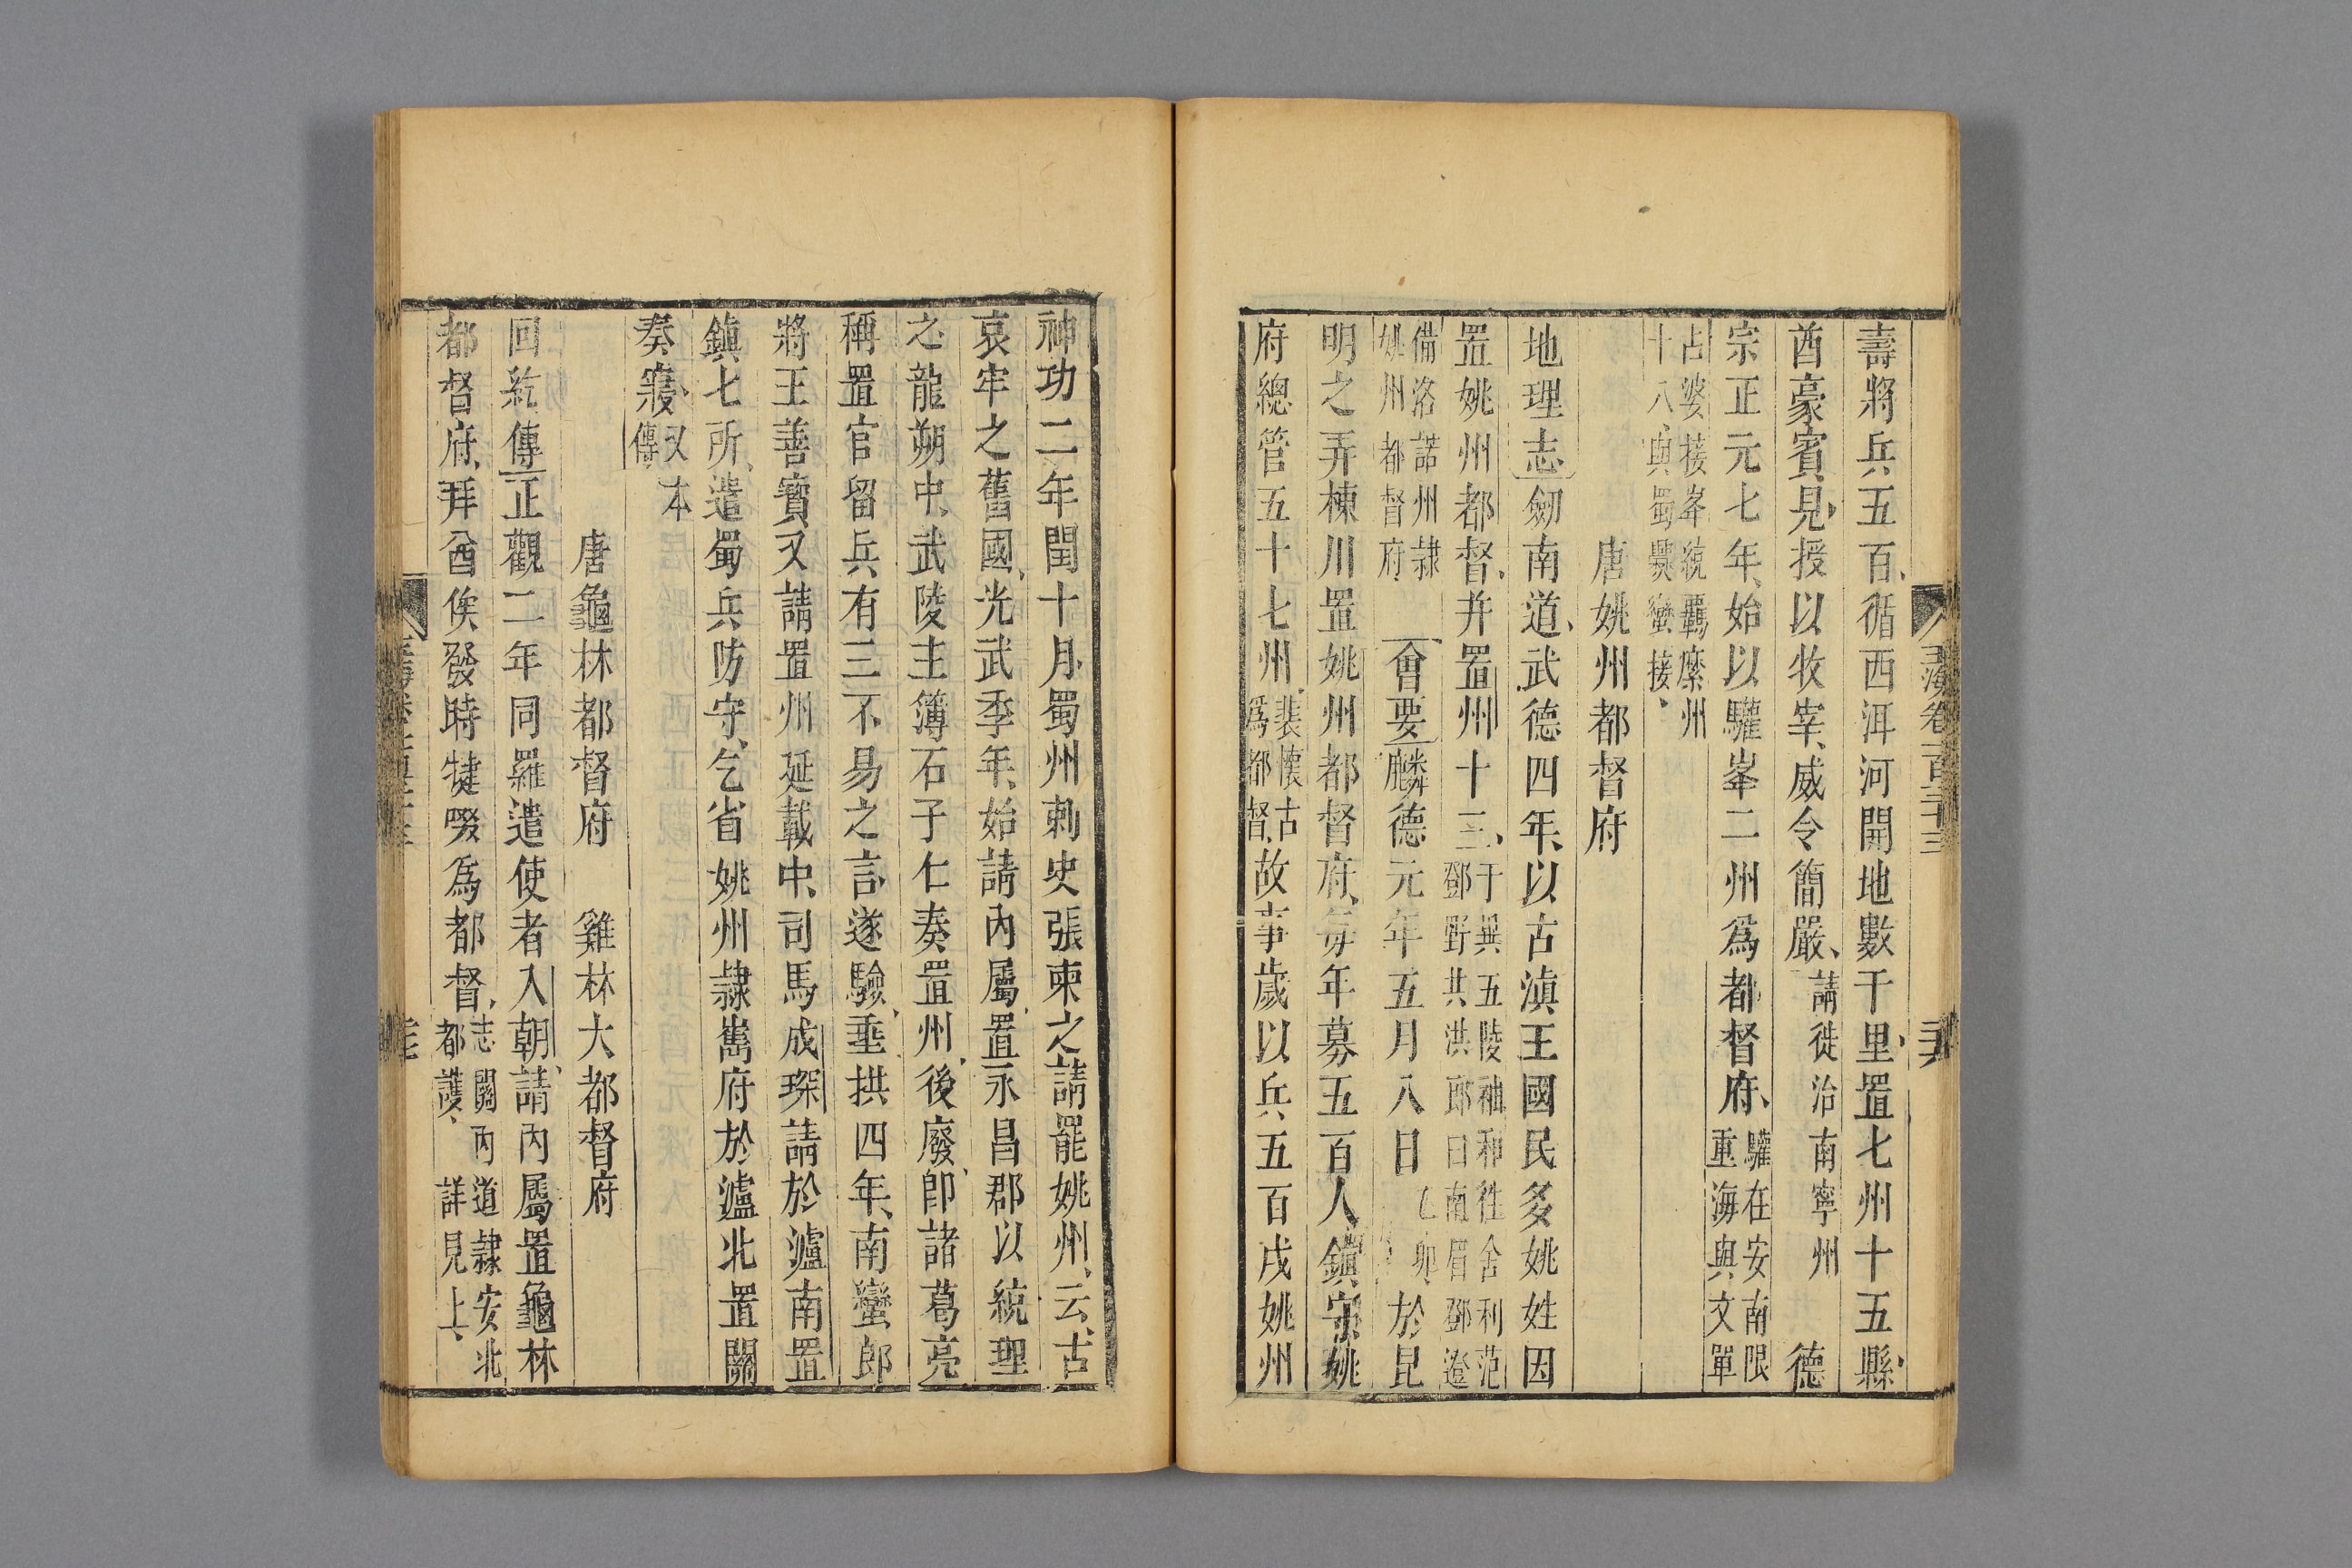 壽將兵五百循西洱河開地數千里置七州十五縣
酋豪賓見授以牧宰威令簡嚴請徙治南寧州德
宗正元七年始以驩峯二州爲都督府驩在安南限
重海與文單
占婆接峯統羈縻州
十八與蜀爨蠻接
唐姚州都督府
地理志劒南道武德四年以古滇王國民多姚姓因
置姚州都督并置州十三于異五陵袖和往舍利范
鄧野共洪郎曰南眉鄧澄
備洛諾州隷
姚州都督府會要麟德元年五月八日乙卯於昆
明之弄棟川置姚州都督府每年募五百人鎮守姚
府總管五十七州裴懷古
爲都督故事歲以兵五百戍姚州
玉海卷一百三十三
神功二年閏十月蜀州刺史張柬之請罷姚州云古
哀牢之舊國光武季年始請內屬置永昌郡以統理
之龍朔中武陵主簿石子仁奏置州後廢卽諸葛亮
稱置官留兵有三不易之言遂驗垂拱四年南蠻郎
將王善寶又請置州延載中司馬成琛請於瀘南置
鎮七所遣蜀兵防守乞省姚州隷雟府於瀘北置關
奏寢又本
傳
唐龜林都督府　雞林大都督府
回紇傳正觀二年同羅遣使者入朝請內屬置龜林
都督府拜酋俟發時犍啜爲都督志關內道隷安北
都護詳見上